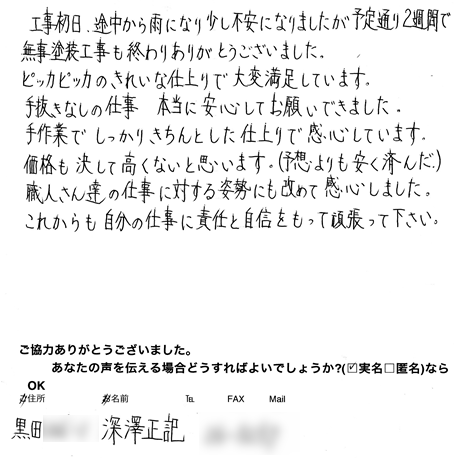 工事初日、途中から雨になり少し不安になりましたが予定通り2週間で
無事塗装工事も終わりありがとうございました。
ピッカピッカのきれいな仕上りで大変満足しています。
手抜きなしの仕事 本当に安心してお願いできました。
手作業でしっかりきちんとした仕上りで感心しています。
価格も決して高くないと思います。(予想よりも安く済んだ。)
職人さん達の仕事に対する姿勢にも改めて感心しました。
これからも自分の仕事に責任と自信をもって頑張って下さい。
ご協力ありがとうございました。
あなたの声を伝える場合どうすればよいでしょうか?(☑実名□匿名)なら
OK
ご住所 お名前 ℡ FAX Mail
黒田 深澤正記